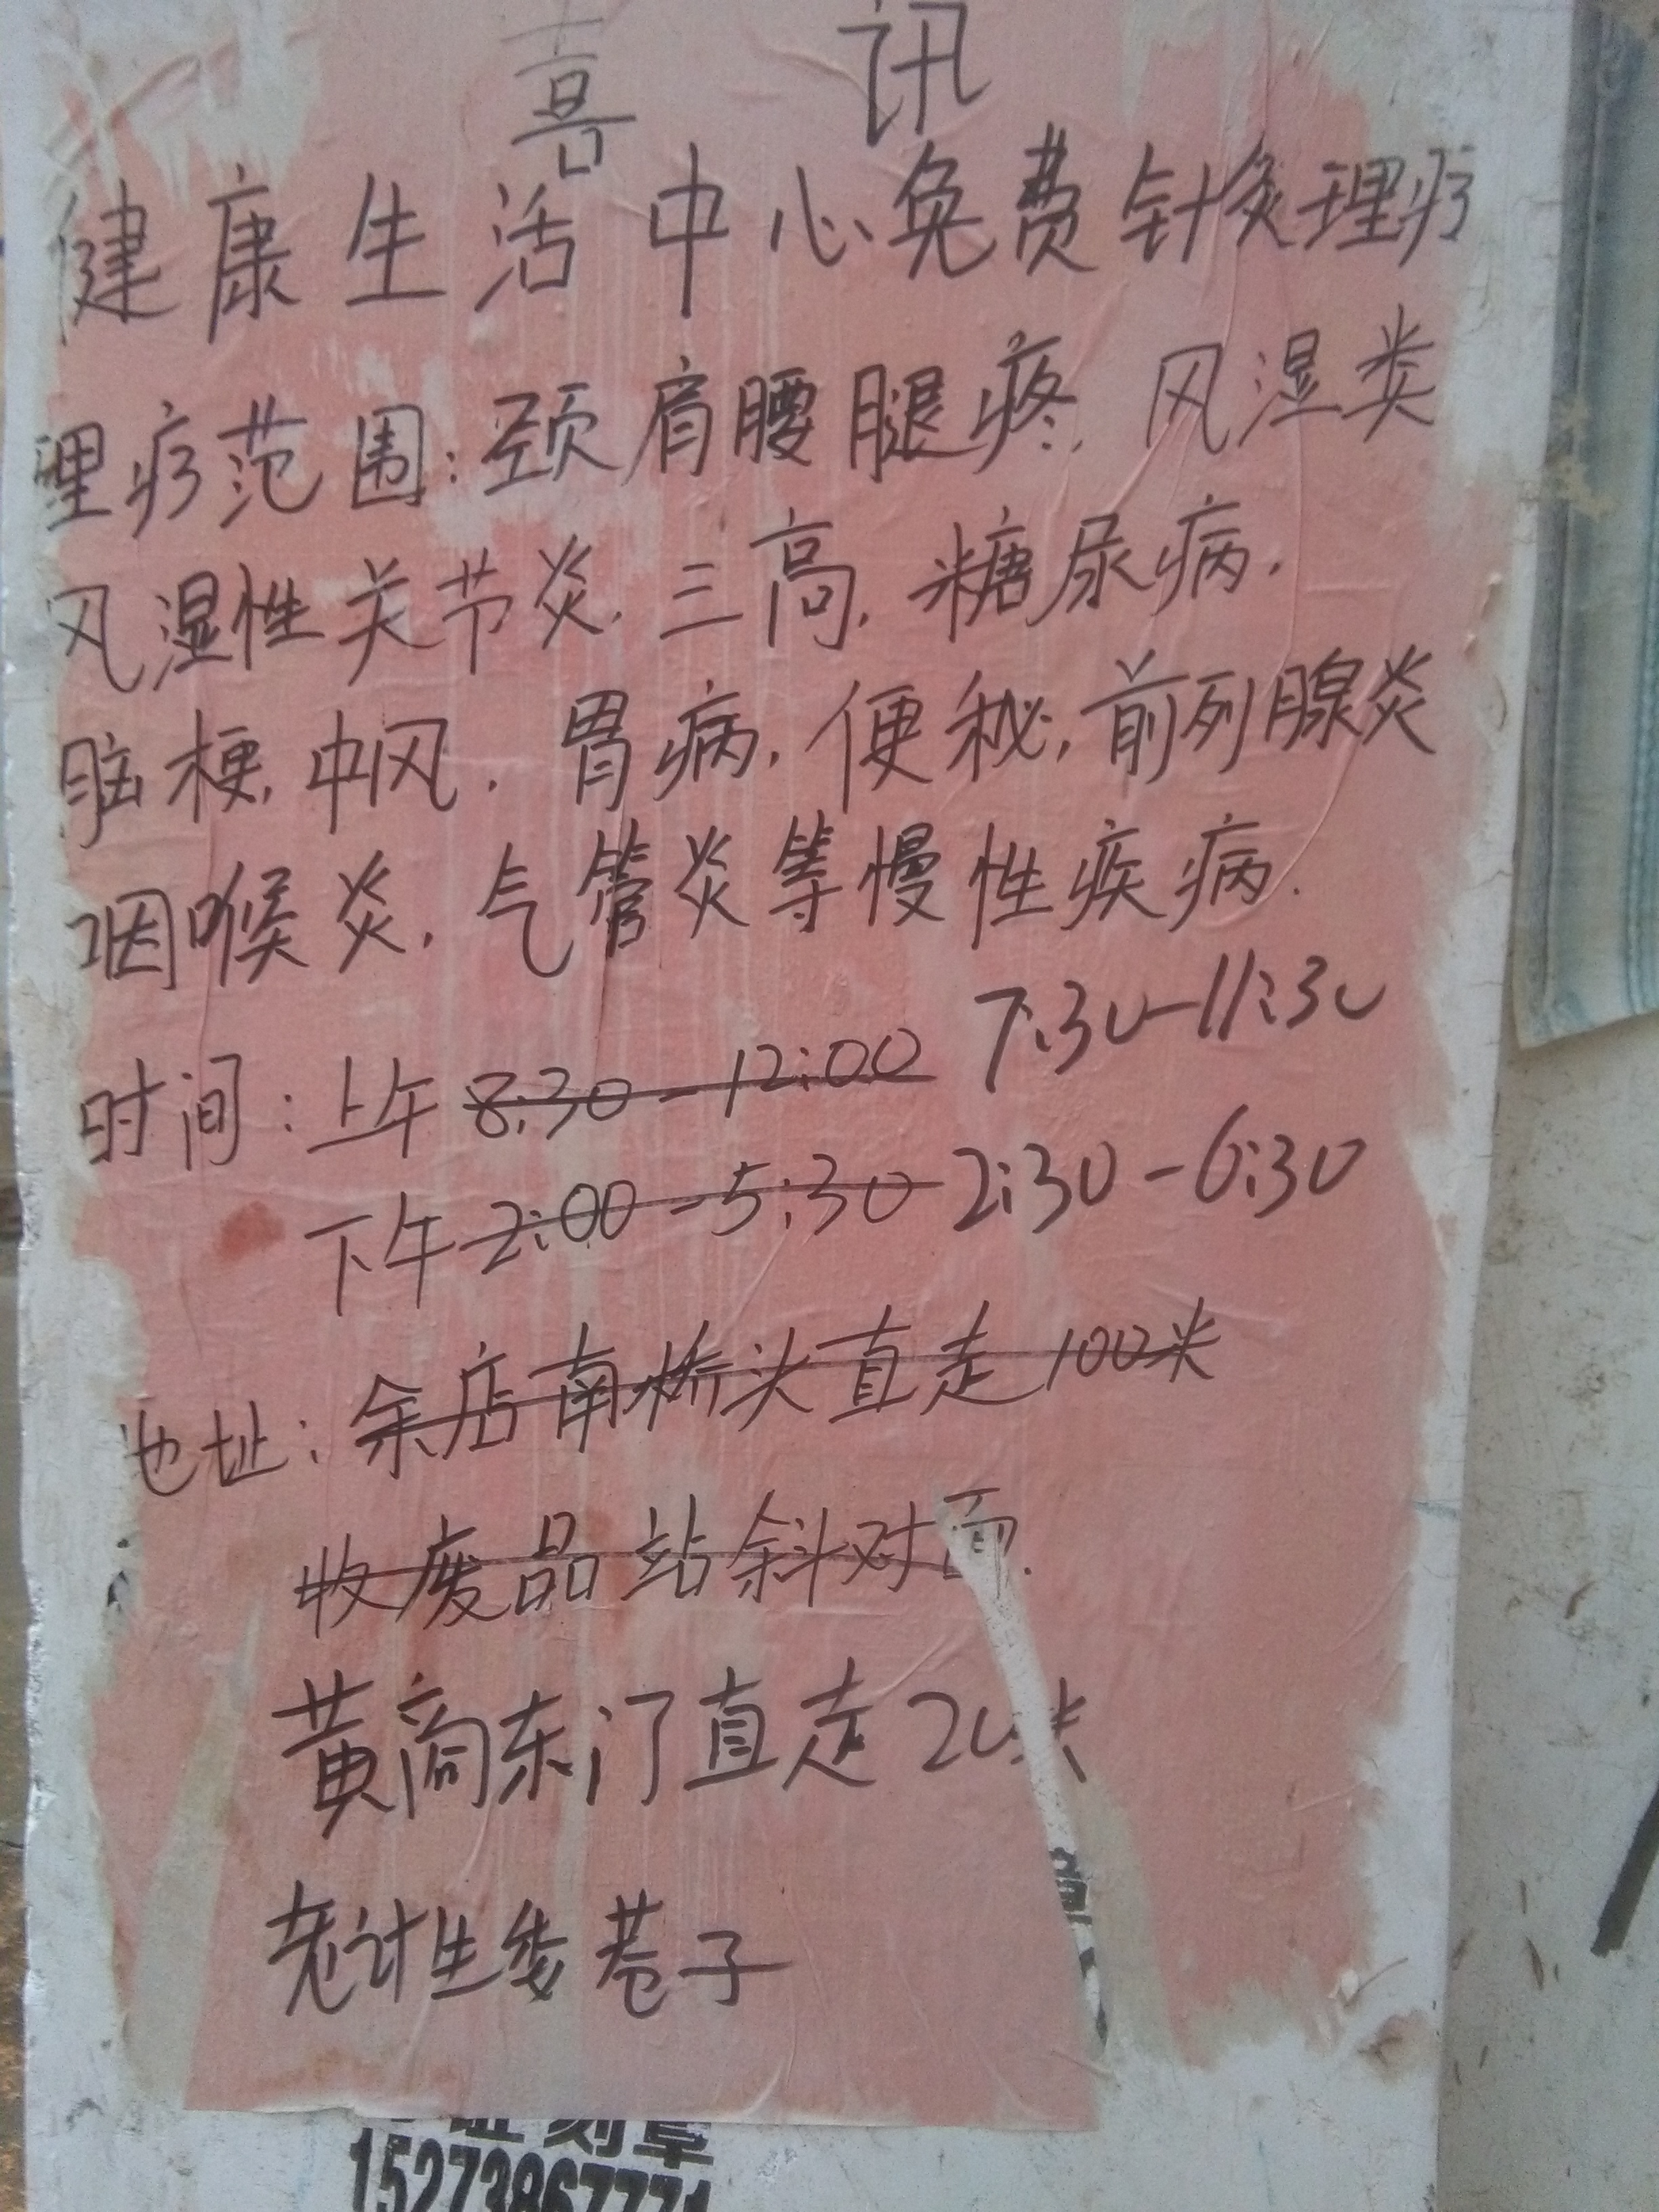 喜 讯
健康生活中心免费针灸理疗
理疗范围:颈肩腰腿疼.风湿类
风湿性关节炎.三高.糖尿病.
脑梗.中风.胃病.便秘.前列腺炎
咽喉炎.气管炎等慢性疾病.
时间:上午 8:30-12:00 7:30-11:30
下午 2:00-5:30 2:30-6:30
地址:余店南桥头直走100米
收废品站斜对面.
黄商东门直走20米
老计生委巷子
证 刻章
15273867771